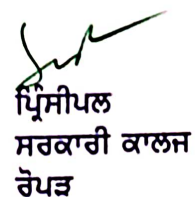 ਪ੍ਰਿੰਸੀਪਲ
ਸਰਕਾਰੀ ਕਾਲਜ
ਰੋਪੜ